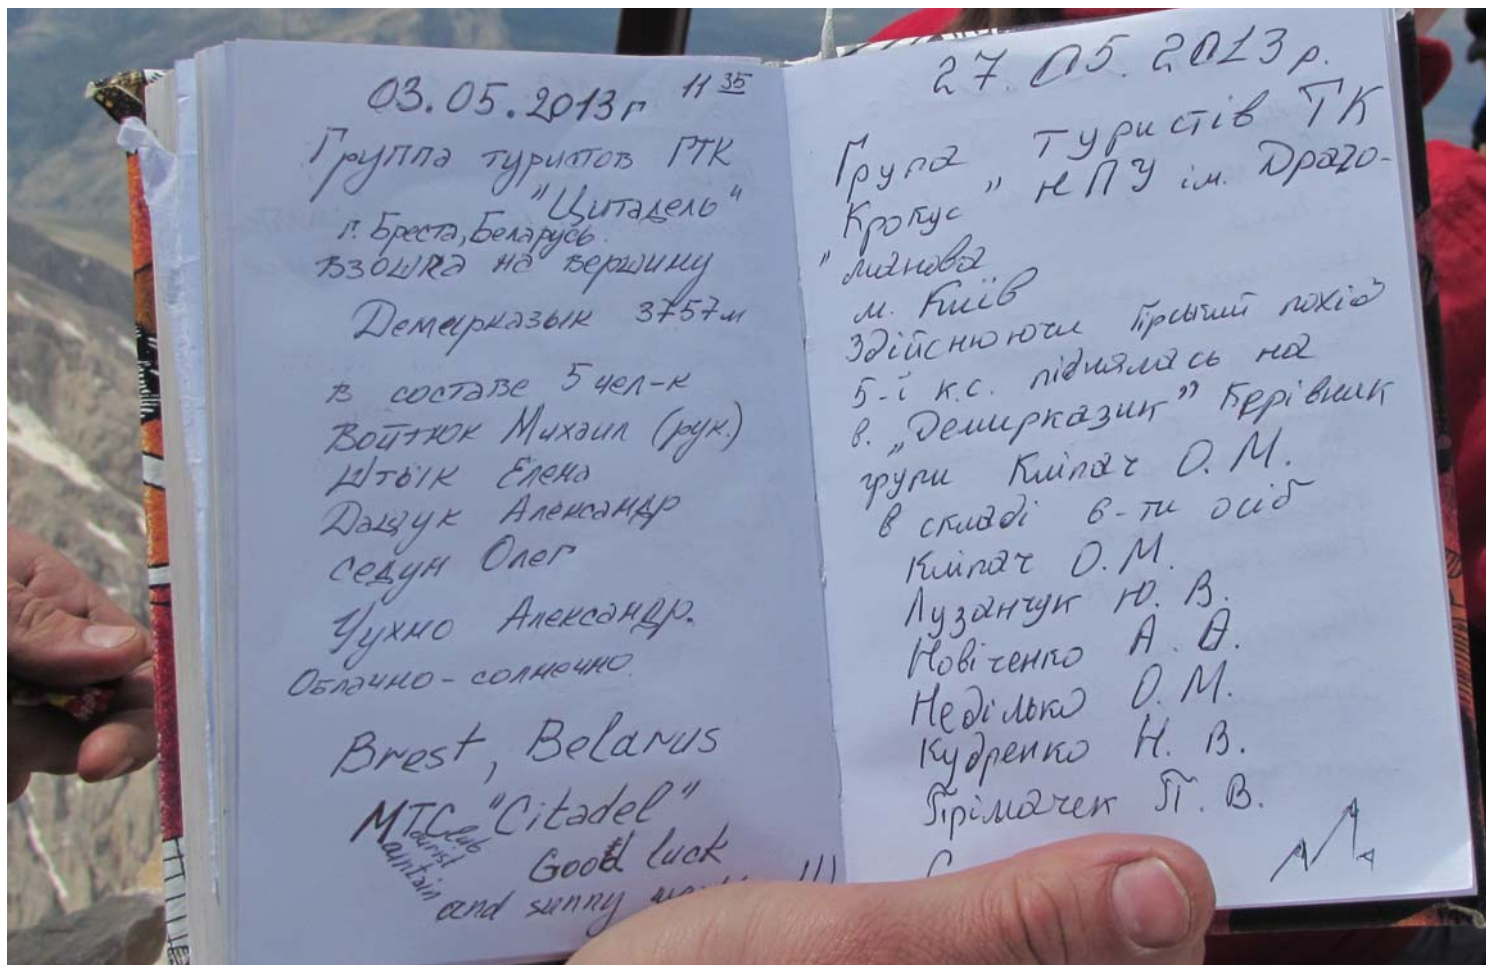 03.05.2013г 11 35
Группа туристов ГТК
"Цитадель"
г. Бреста, Беларусь.
взошла на вершину
Демирказык 3757м
в составе 5 чел-к
Войтюк Михаил (рук.)
Штык Елена
Дацук Александр
Седун Олег
Чухно Александр.
Облачно-солнечно.
Brest, Belarus
MTC "Citadel"
Mauntain
Tourist
Club
Good luck
and sunny !!!
27.05.2013р.
Група туристів ТК
"Крокус" НПУ ім. Драго-
манова
м. Київ
Здійснюючи гірський похід
5-ї к.с. піднялась на
в. „Демирказик" Керівник
групи Кліпач О. М.
в складі 6-ти осіб
Кліпач О. М.
Лузанчук Ю. В.
Новіченко А. О.
Неділько О. М.
Кудренко Н. В.
Грімачек П. В.